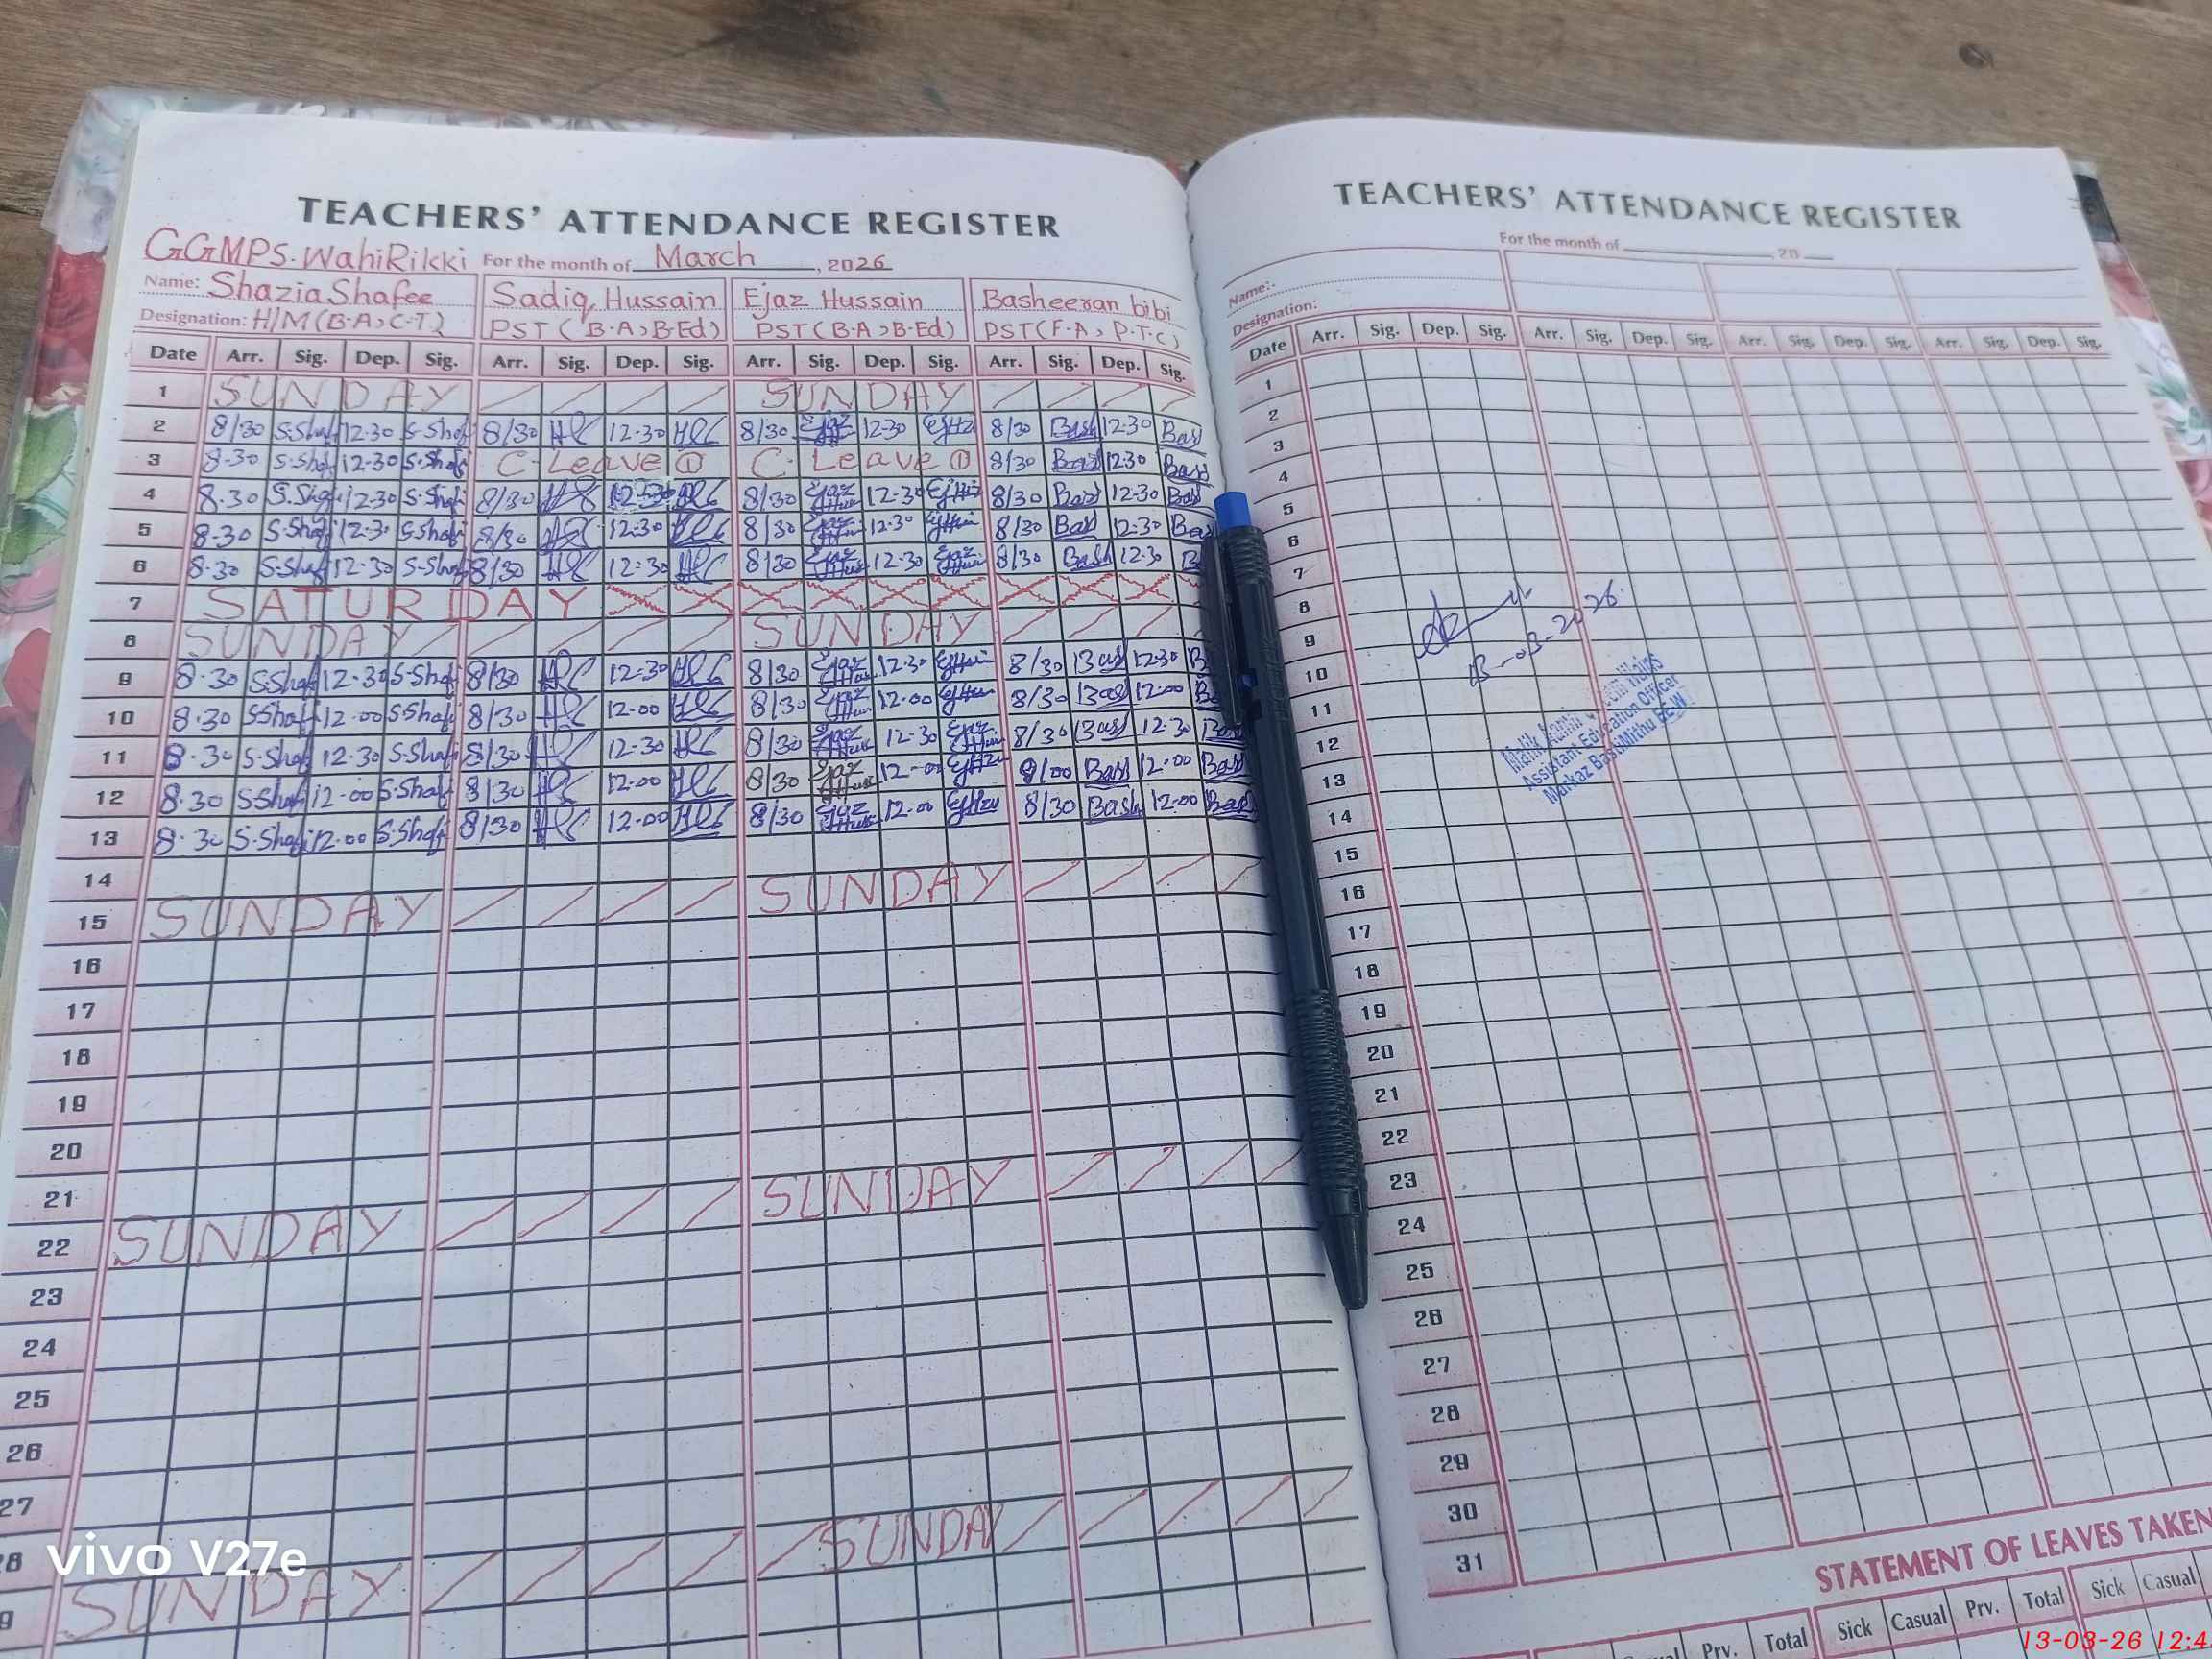 TEACHERS' ATTENDANCE REGISTER
GGMPS. WahiRikki For the month of March, 2026
Name: Shazia Shafee Sadiq Hussain Ejaz Hussain Basheeran bibi
Designation: H/M (B.A, C.T) PST (B.A, B.Ed) PST (B.A, B.Ed) PST (F.A, P.T.C)
Date Arr. Sig. Dep. Sig. Arr. Sig. Dep. Sig. Arr. Sig. Dep. Sig. Arr. Sig. Dep. Sig.
1 SUNDAY SUNDAY
2 8/30 S.Shaf 12.30 S-Shaf 8/30 12.30 8/30 Ejaz 12.30 8/30 Bash 12.30 Bas
3 8.30 S.Shaf 12.30 S.Shaf C. Leave ① C. Leave ① 8/30 Bas 12.30 Bas
4 8.30 12.30 S.Shafi 8/30 12.30 8/30 Ejaz 12.30 8/30 Bas 12.30 Bas
5 8.30 S.Shaf 12.30 S.Shafi 8/30 12.30 8/30 Ejaz 12.30 8/30 Bas 12.30 Bas
6 8.30 S.Shaf 12.30 S.Shaf 8/30 12.30 8/30 Ejaz 12.30 Ejaz 8/30 Bash 12.30 B
7 SATURDAY
8 SUNDAY SUNDAY
9 8.30 S.Shaf 12.30 S.Shaf 8/30 12.30 8/30 Ejaz 12.30 8/30 Bas 12.30 B
10 8.30 S.Shaf 12.00 S.Shaf 8/30 12.00 8/30 Ejaz 12.00 8/30 Bas 12.00 B
11 8.30 S.Shaf 12.30 S.Shaf 8/30 12.30 8/30 Ejaz 12.30 Ejaz 8/30 Bas 12.30 Bas
12 8.30 S.Shaf 12.00 S.Shaf 8/30 12.00 8/30 Ejaz 12.00 Bas 12.00 Bas
13 8.30 S.Shaf 12.00 S.Shaf 8/30 12.00 8/30 Ejaz 12.00 8/30 Bash 12.00 Bas
14
15 SUNDAY SUNDAY
16
17
18
19
20
21
22 SUNDAY SUNDAY
23
24
25
26
27
28
9 SUNDAY SUNDAY
vivo V27e
TEACHERS' ATTENDANCE REGISTER
For the month of , 20
Name:
Designation:
Date Arr. Sig. Dep. Sig. Arr. Sig. Dep. Sig. Arr. Sig. Dep. Sig. Arr. Sig. Dep. Sig.
1
2
3
4
5
6
7
8
9
10
11
12
13
14
15
16
17
18
19
20
21
22
23
24
25
26
27
28
29
30
31
13-03-2026
Malik
Assistant Education Officer
Markaz Basti Mithu
STATEMENT OF LEAVES TAKEN
Prv. Total Sick Casual Prv. Total Sick Casual
13-03-26 12:4